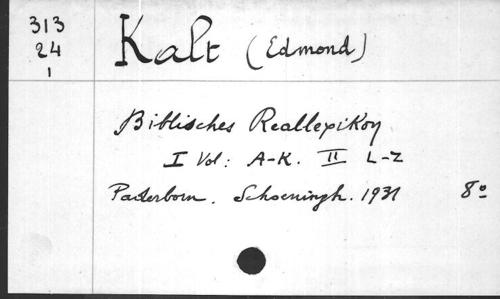 313
24
1
Kalt (Edmond)
Biblisches Reallexikon
I Vol: A-K. II L-Z
Paderborn. Schoeningh. 1931 8º